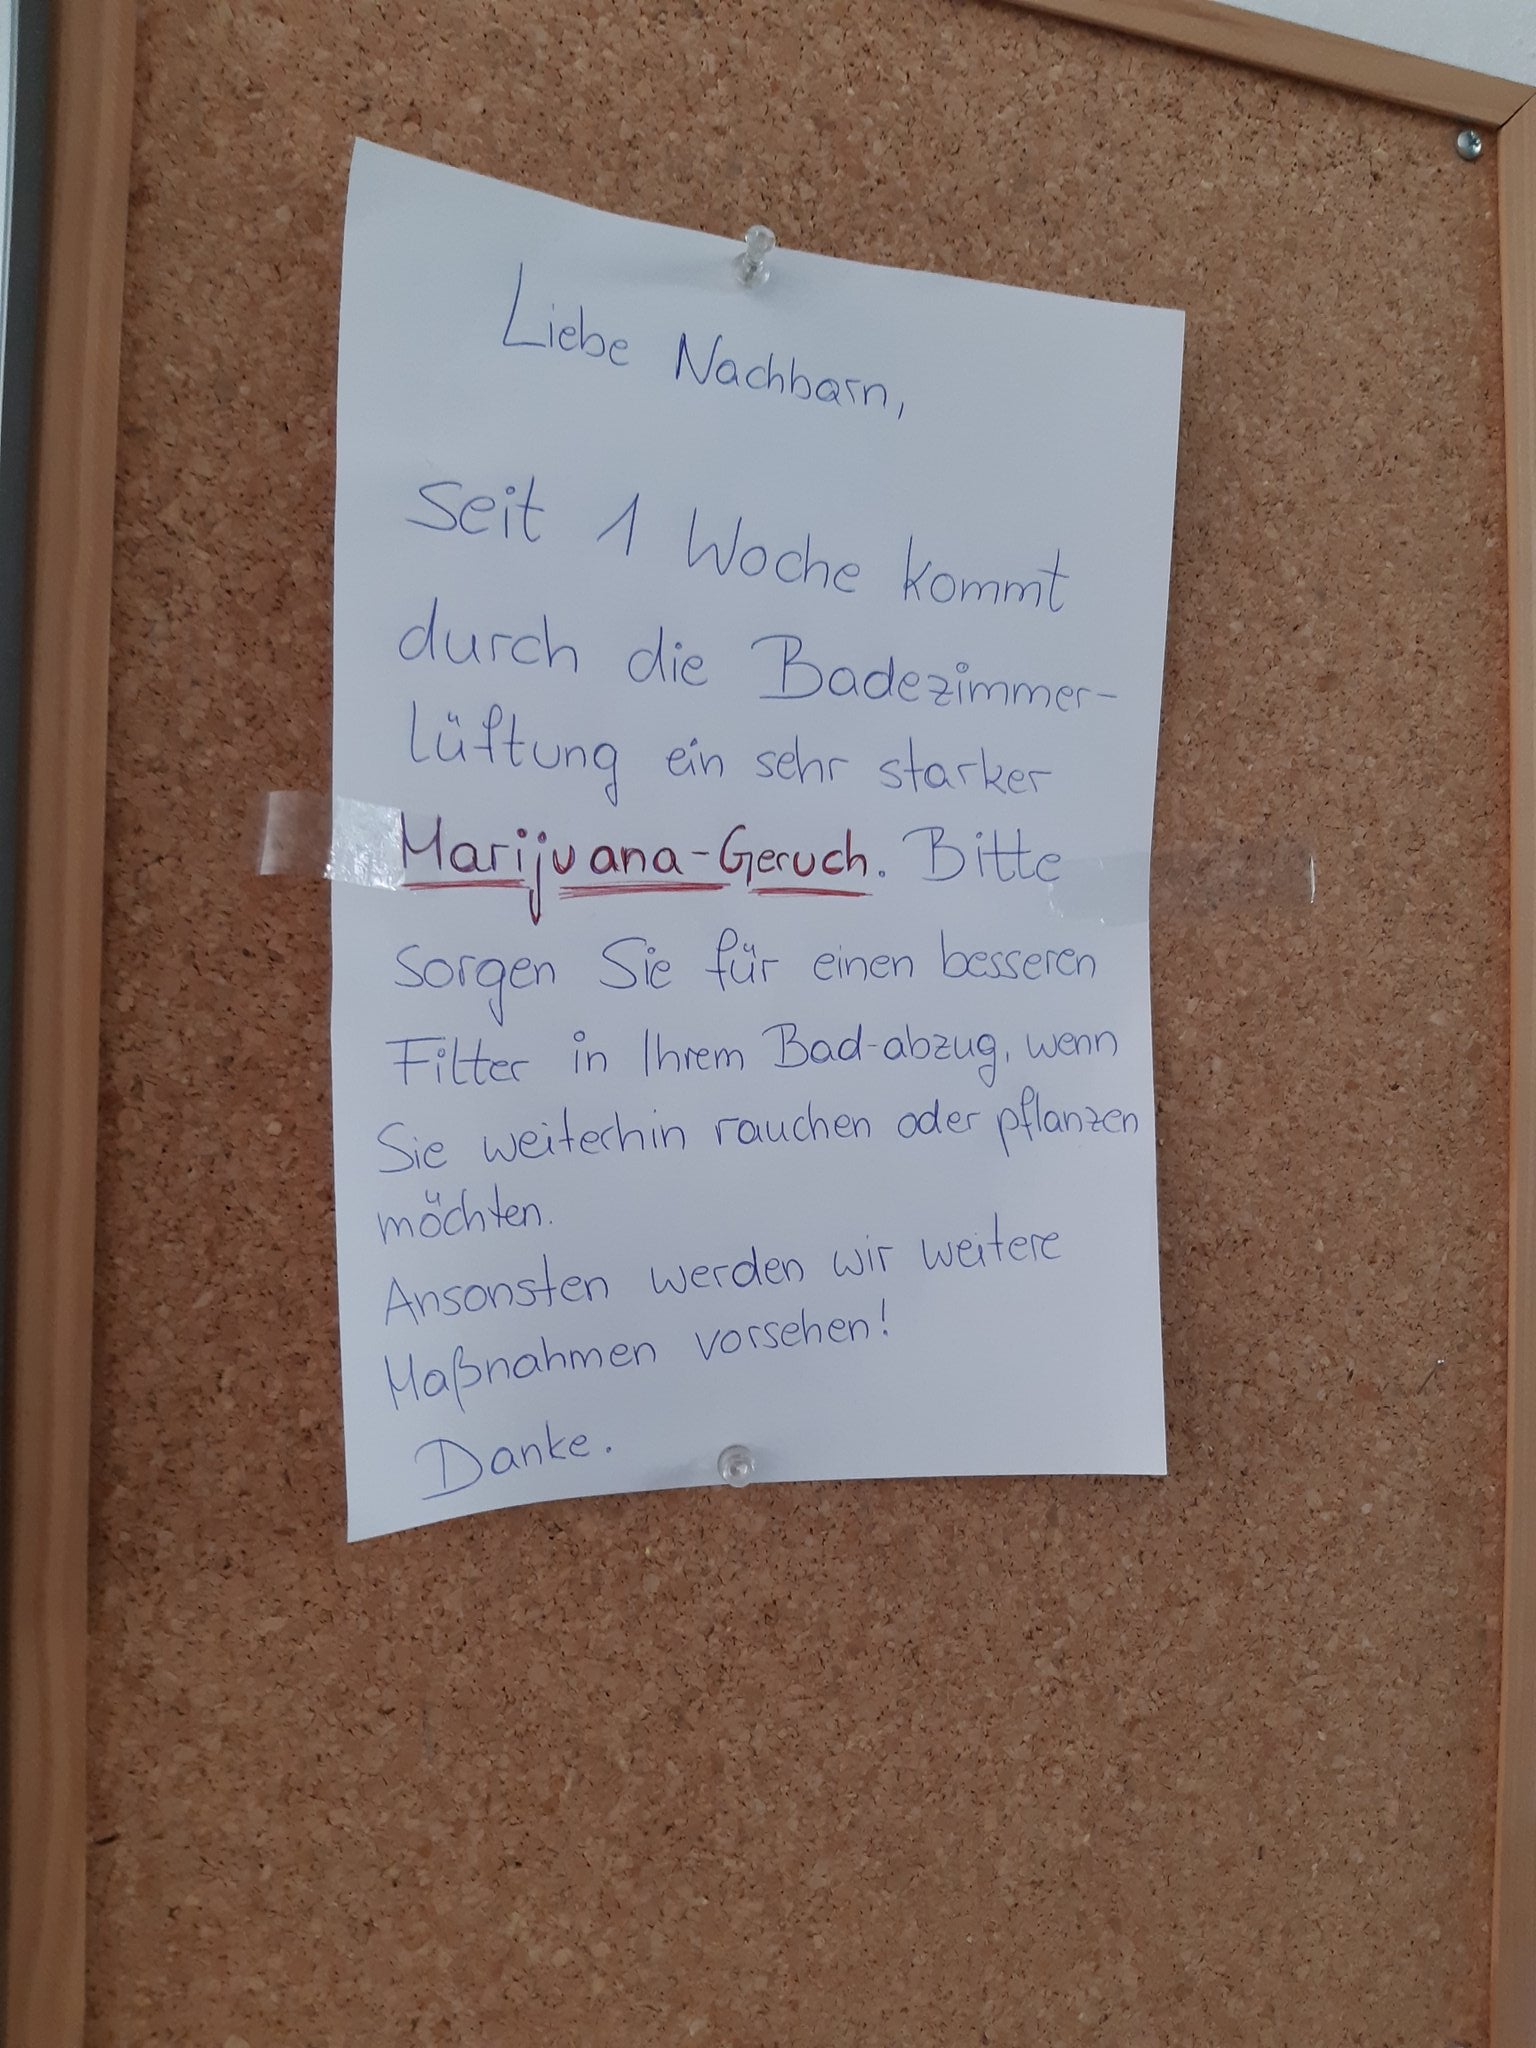 Liebe Nachbarn,
Seit 1 Woche kommt
durch die Badezimmer-
lüftung ein sehr starker
Marijuana-Geruch. Bitte
sorgen Sie für einen besseren
Filter in Ihrem Bad-abzug, wenn
Sie weiterhin rauchen oder pflanzen
möchten.
Ansonsten werden wir weitere
Maßnahmen vorsehen!
Danke.